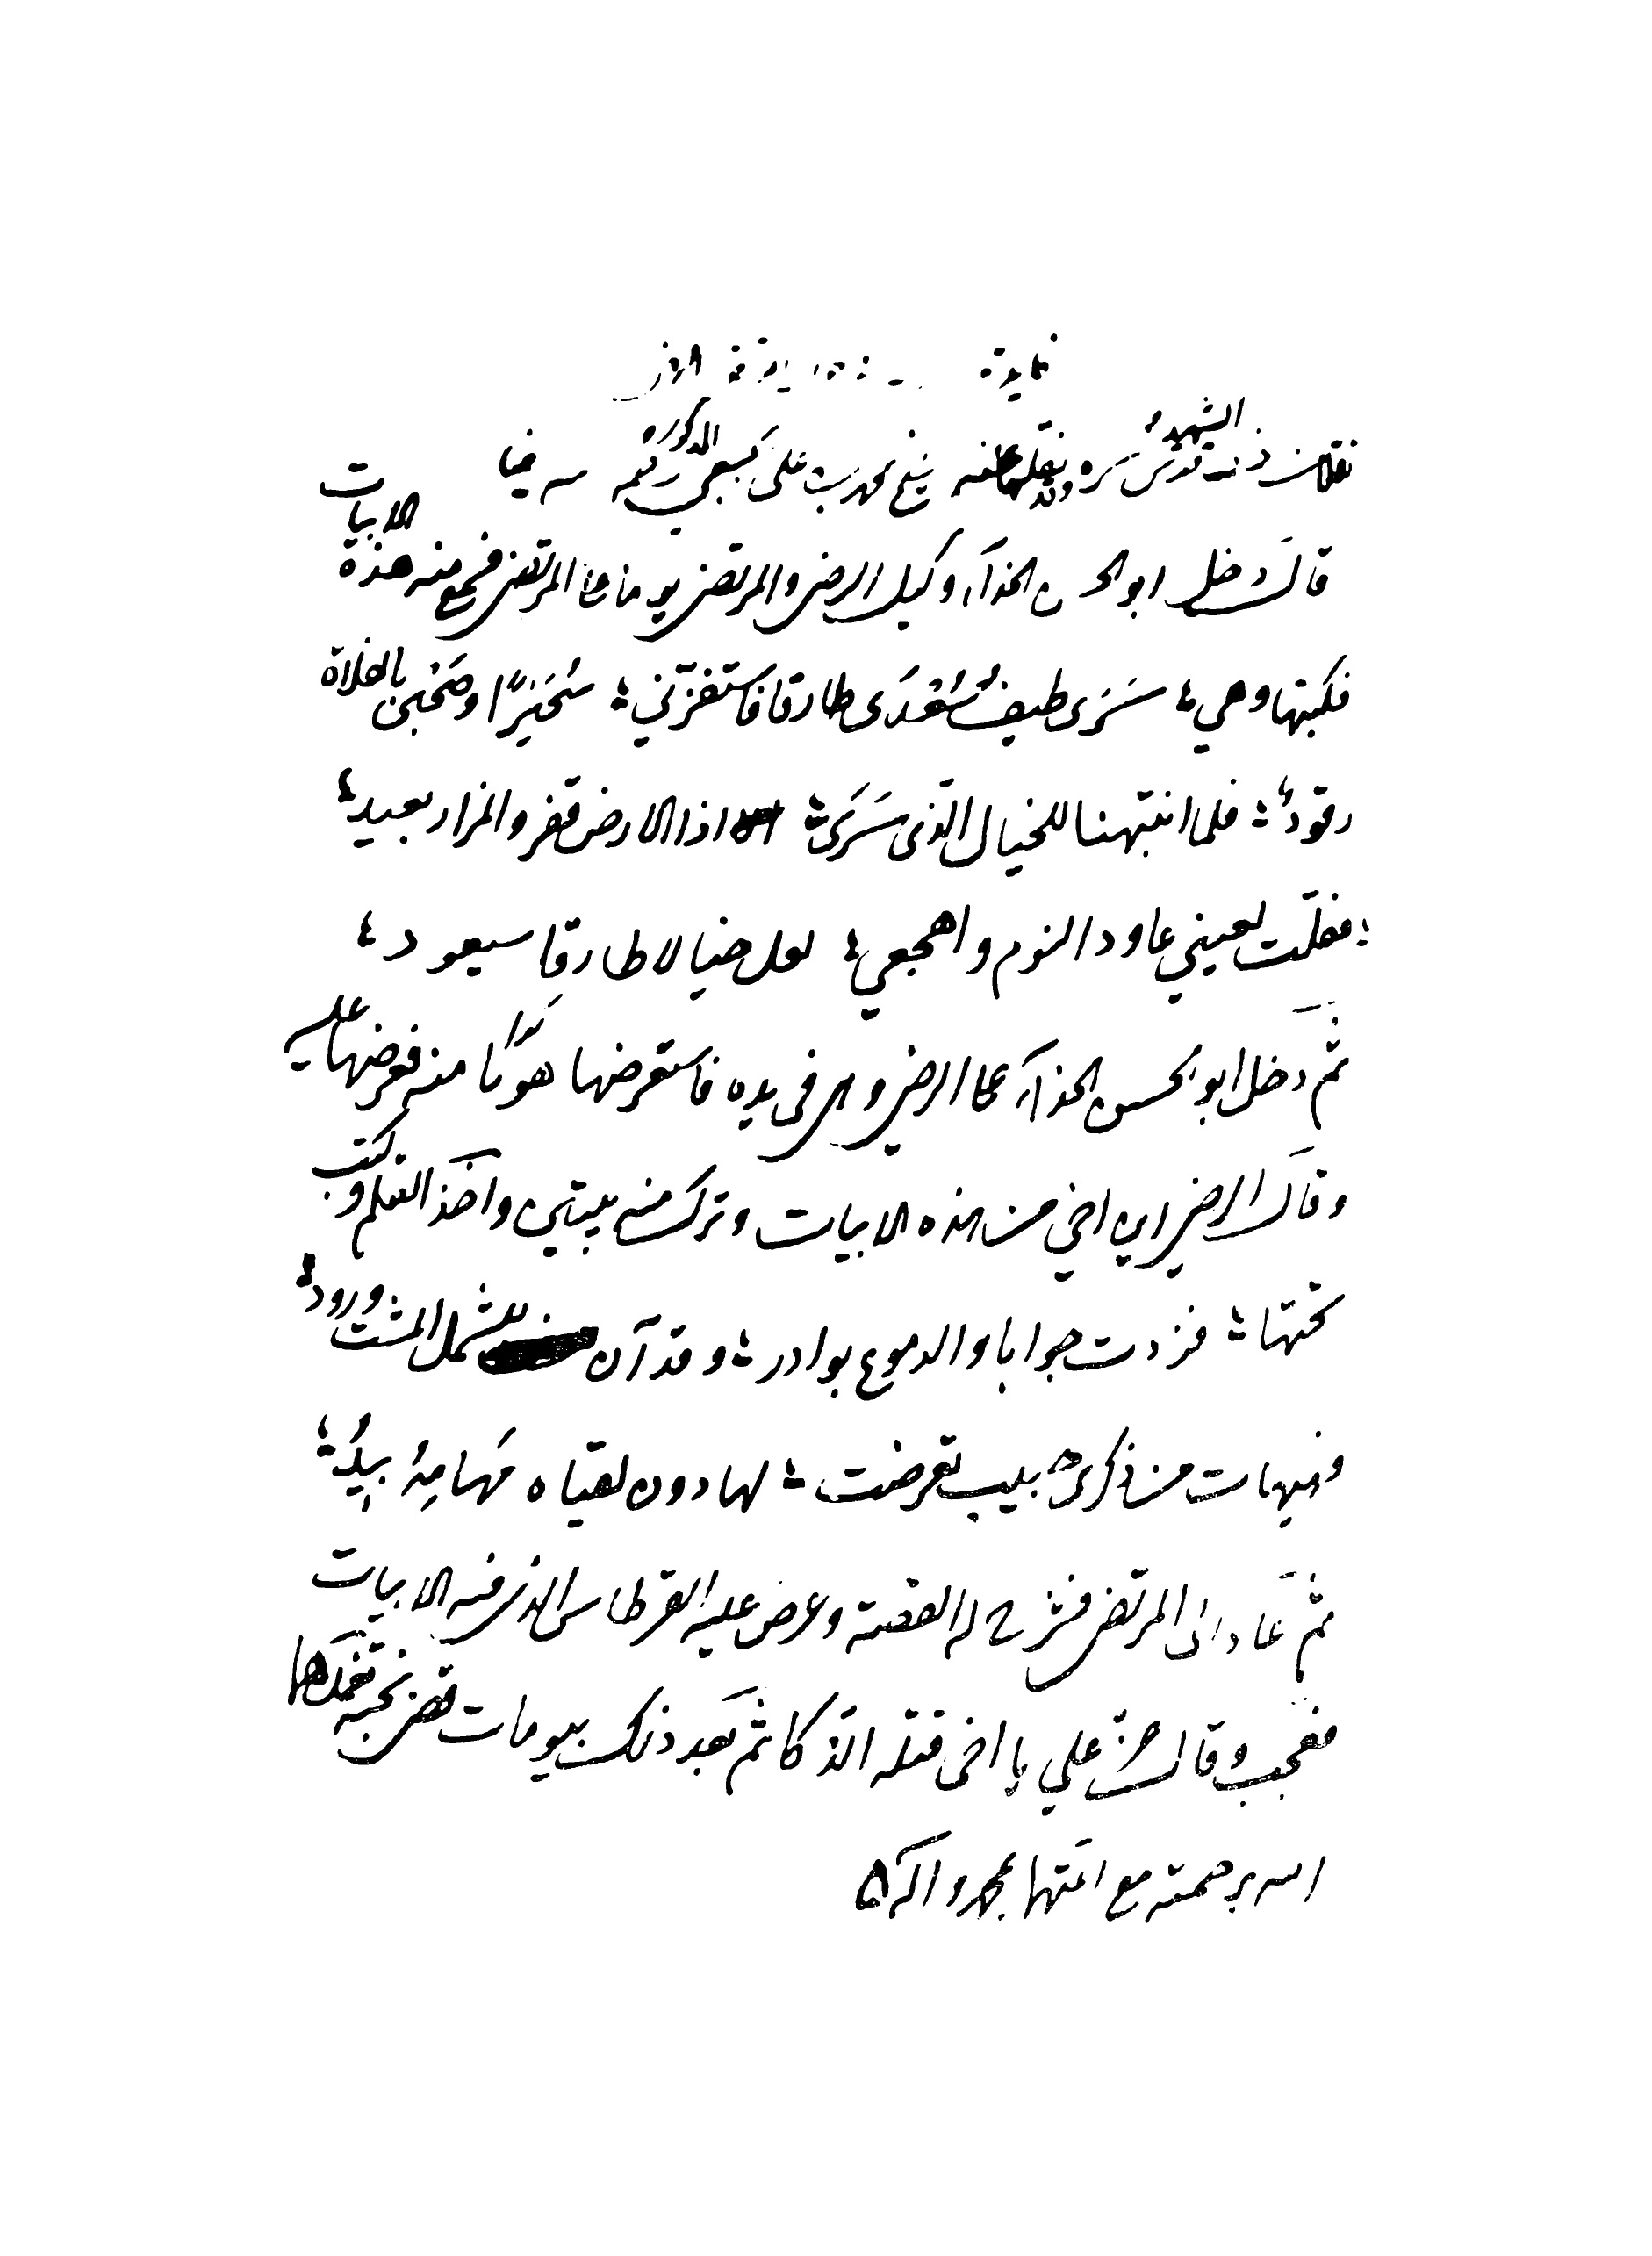 فايدة
نقلت من خط الشهيد قدس سره وقد نقلها عنه شيخ محمد بن علي الجبعي المذكور
قال دخل ابو الحسن الحذآء وكيل الرضي والمرتضى يوما على المرتضى فسمع منه هذة الابيات
فكتبتها وهي ؛ سَرَى طيفُ سُعْدَى طارقا فاستفزّني ؛ سُحَيْرًا وصَحْبي بالفلاة
رقودُ ؛ فلما انتبهنا للخيال الذى سَرَى ؛ اذا الارض قفر والمزار بعيد ؛
؛ فقلت لعيني عاود النوم واهجعي ؛ لعل خيالا طارقا سيعود ؛
ثم دخل ابو الحسن الحذآء على الرضي وهي في يده فاستعرضها منه فعرضها عليه
وقال الرضي اين اخي من هذه الابيات وترك منه بيتين واخذ القلم وكتب
تحتها ؛ فزدت جوابا والدموع بوادر ؛ وقد آن للشمل المشت ورود ؛
وهيهات من ذكرى حبيب تعرضت ؛ لها دون لقياه مَهامِهُ بيدُ ؛
ثم عاد الى المرتضى فشرح له القصة وعرض عليه القرطاس الذى فيه الابيات
فعجب وقال عزّ علي يا اخى قتله الذكا ثم بعد ذلك بيومات قضى نحبه تغمدهما
الله برحمته مع ائمتهما بمحمد وآله ۵